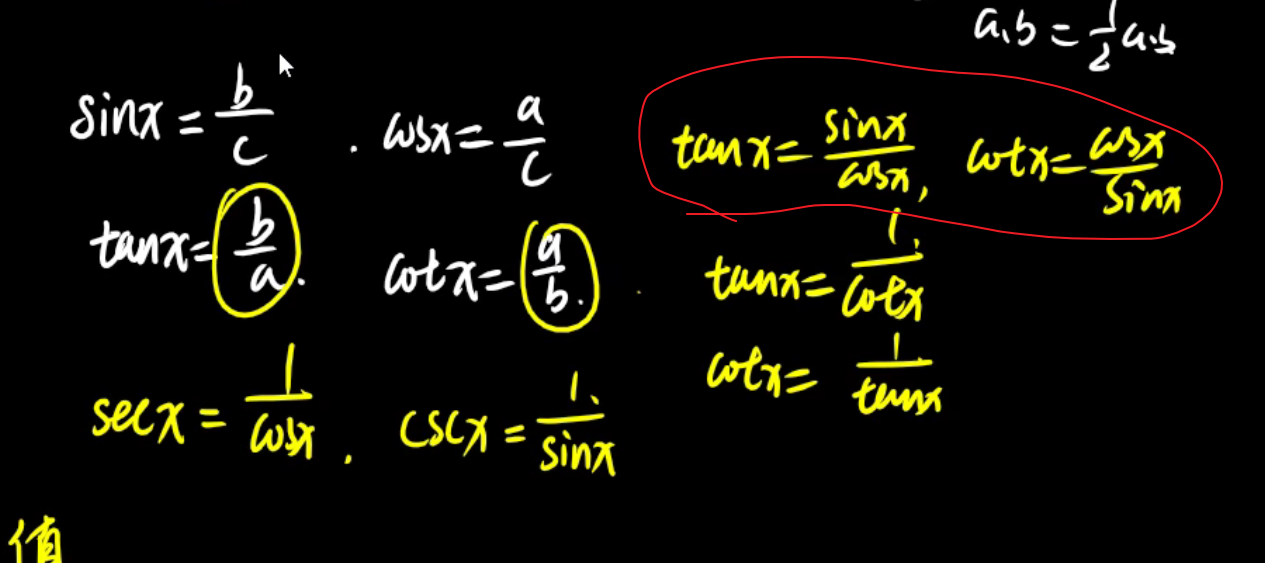 a,b = 1/2 a·b
sinx = b/c . cosx = a/c
tanx = sinx/cosx, cotx = cosx/sinx
tanx = b/a. cotx = a/b.
tanx = 1/cotx
cotx = 1/tanx
secx = 1/cosx. cscx = 1/sinx
值